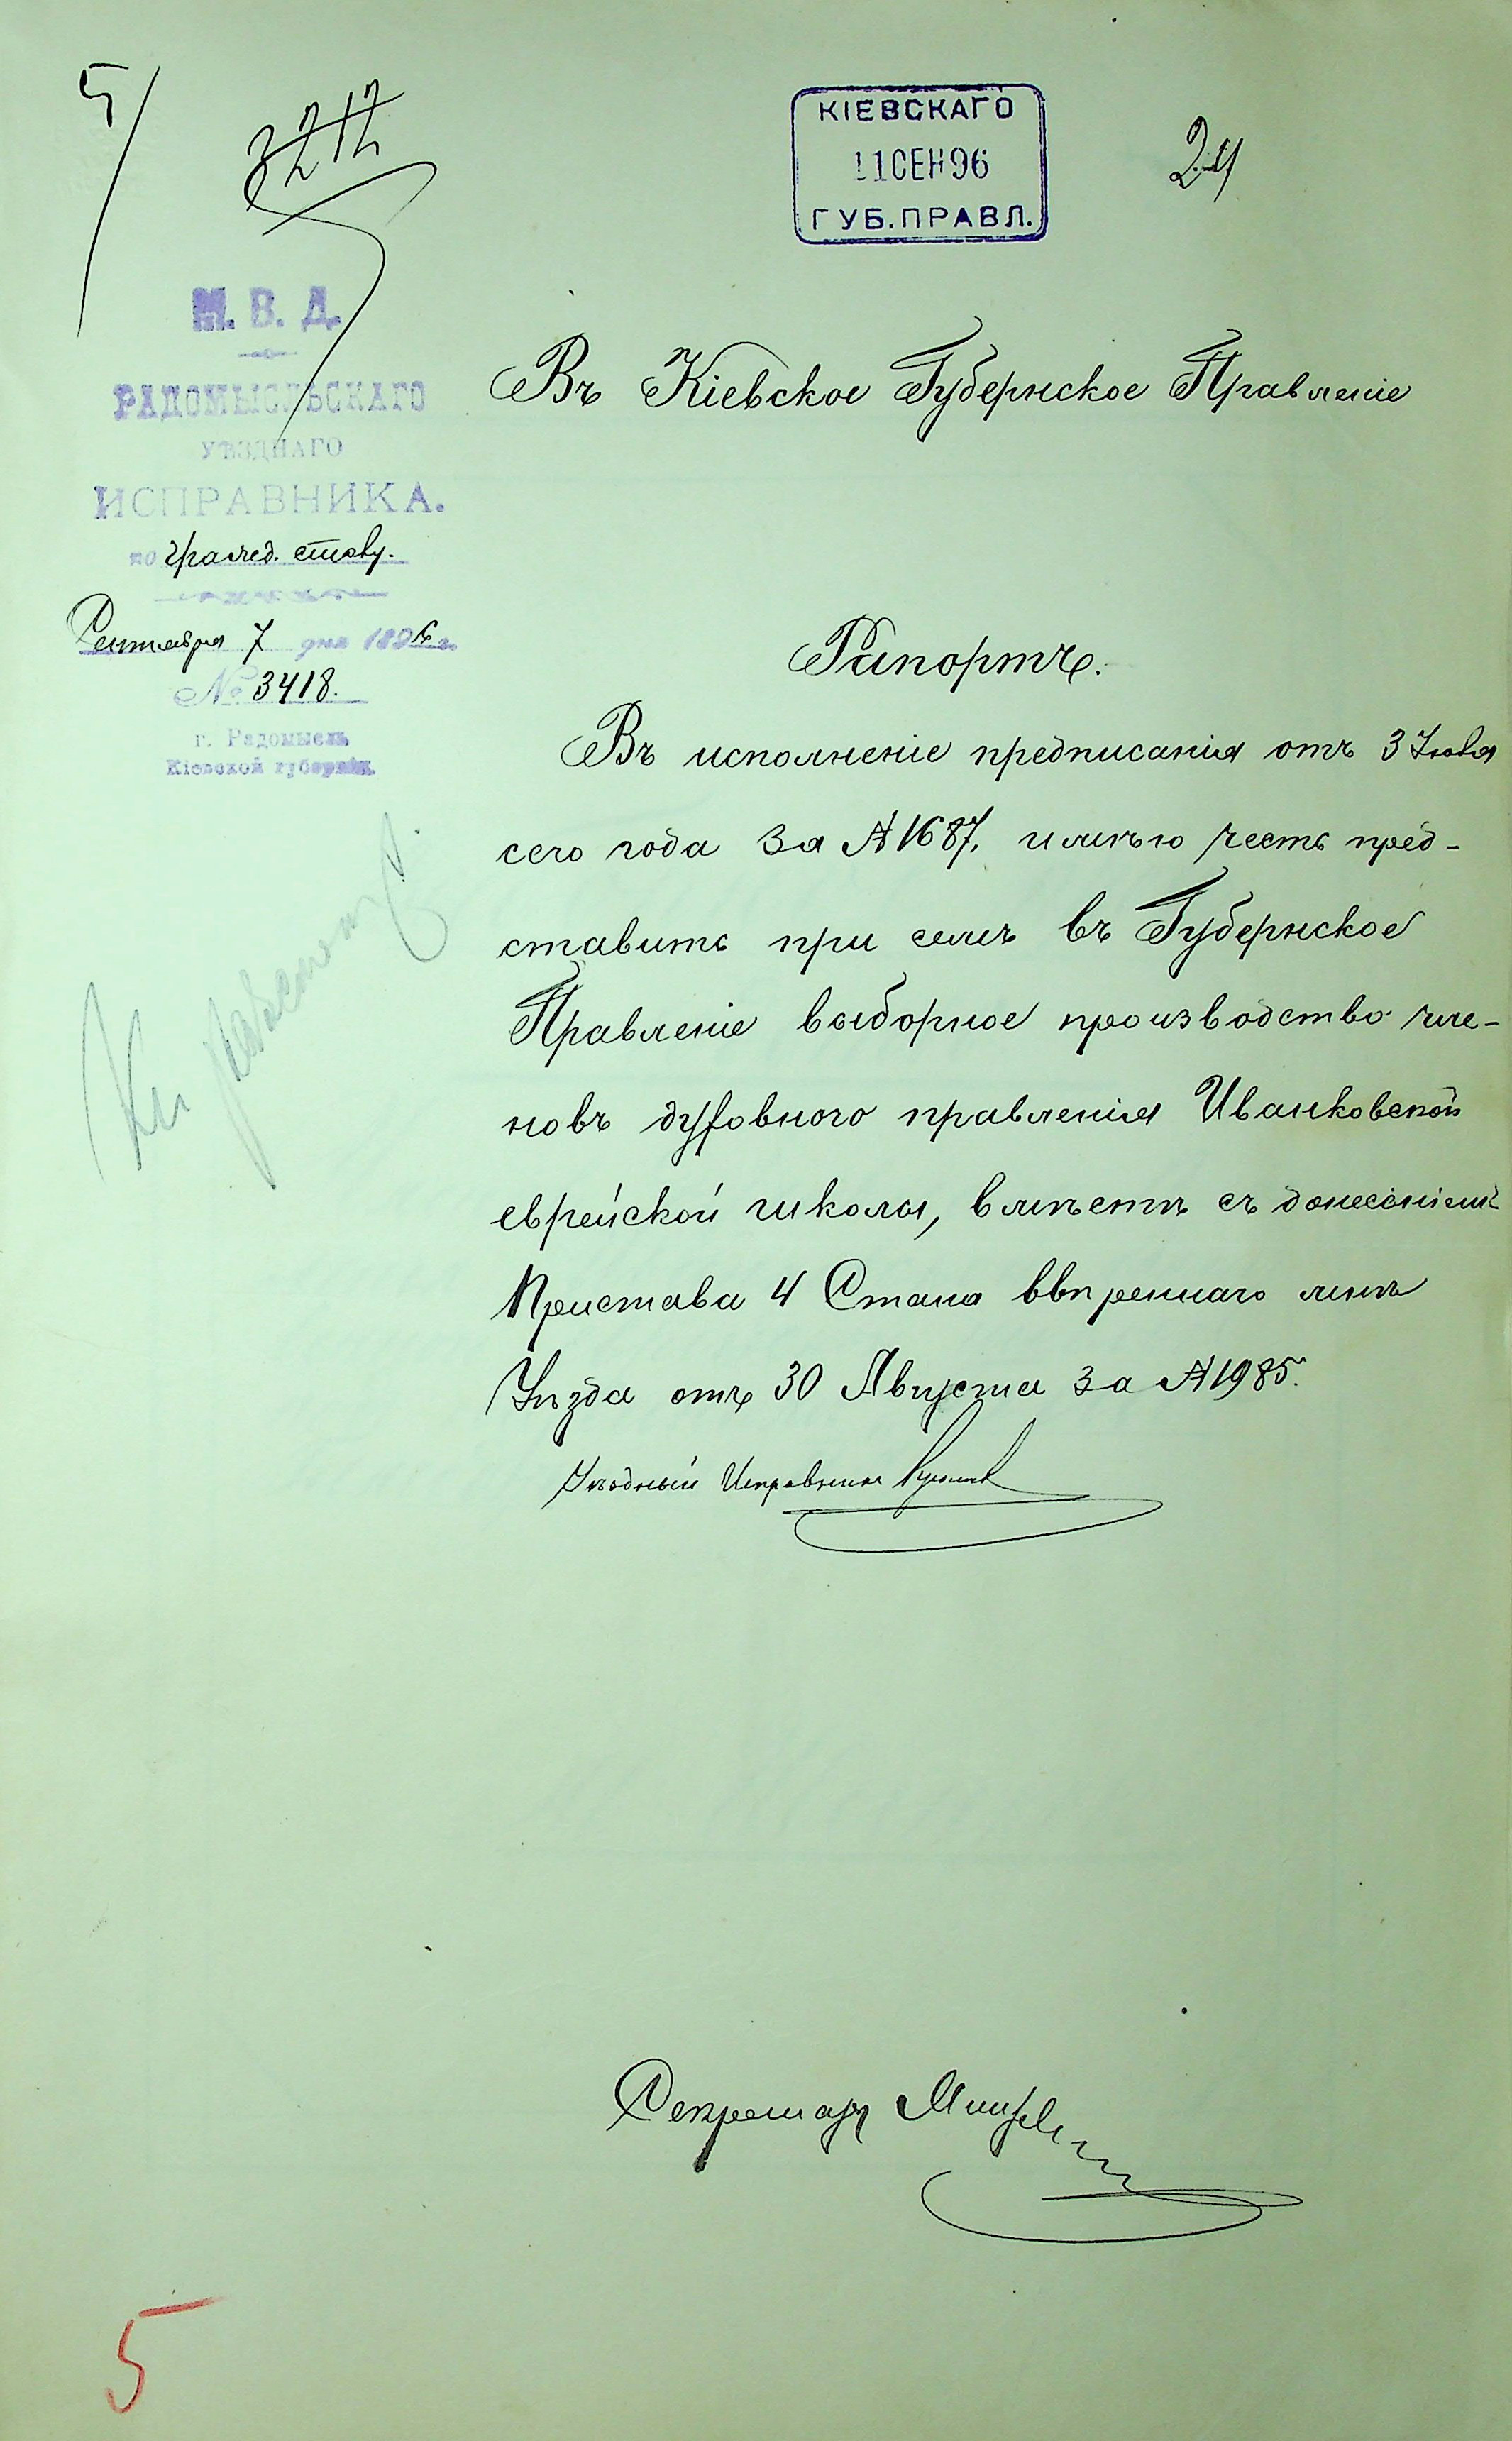 5
3212
КІЕВСКАГО
11 СЕН 96
ГУБ. ПРАВЛ.
24
М. В. Д.
РАДОМЫСЛЬСКАГО
УѢЗДНАГО
ИСПРАВНИКА.
по гражд. столу.
Сентября 7 дня 1896 г.
№ 3418.
г. Радомысль
Кіевской губерніи.
Въ Кіевское Губернское Правленіе
Рапортъ.
Въ исполненіе предписанія отъ 3 Іюля
сего года за № 1687, имѣю честь пред-
ставить при семъ въ Губернское
Правленіе выборное производство чле-
новъ духовного правленія Иванковской
еврейской школы, вмѣстѣ съ донесеніемъ
Пристава 4 Стана ввѣреннаго мнѣ
Уѣзда отъ 30 Августа за № 1985.
Уѣздный Исправникъ
Секретарь
5